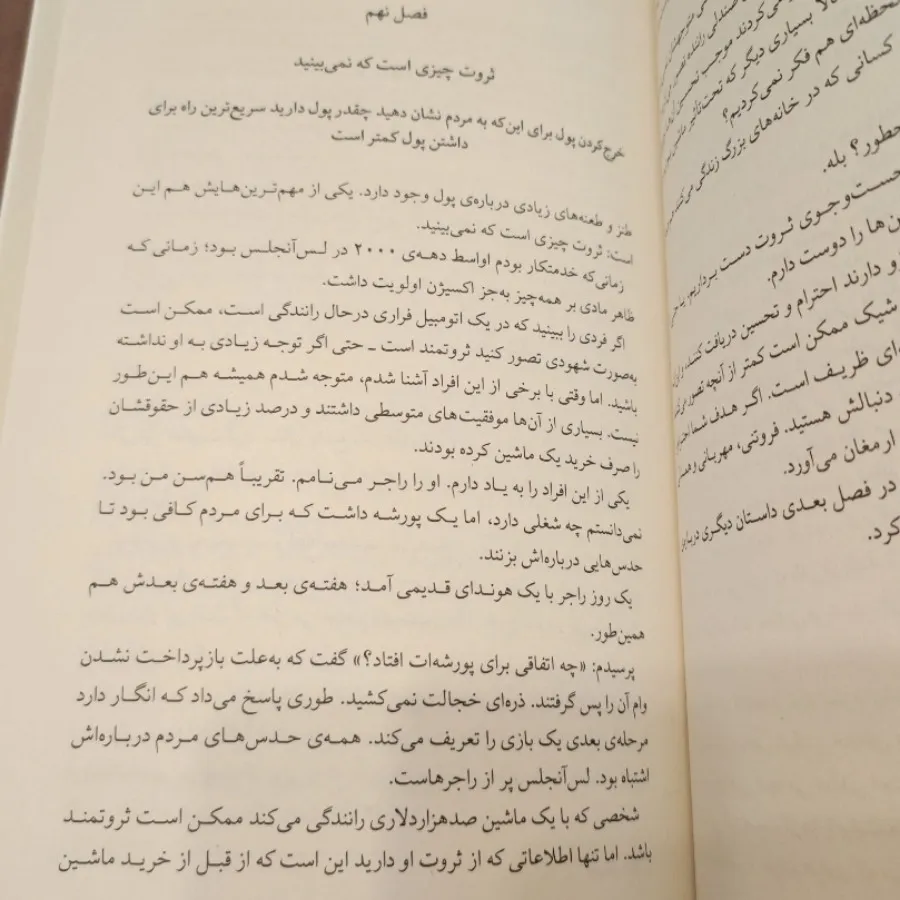 فصل نهم
ثروت چیزی است که نمی‌بینید
خرج‌کردن پول برای این‌که به مردم نشان دهید چقدر پول دارید سریع‌ترین راه برای
داشتن پول کمتر است
طنز و طعنه‌های زیادی درباره‌ی پول وجود دارد. یکی از مهم‌ترین‌هایش هم این
است: ثروت چیزی است که نمی‌بینید.
زمانی‌که خدمتکار بودم اواسط دهه‌ی ۲۰۰۰ در لس‌آنجلس بود؛ زمانی که
ظاهر مادی بر همه‌چیز به‌جز اکسیژن اولویت داشت.
اگر فردی را ببینید که در یک اتومبیل فراری درحال رانندگی است، ممکن است
به‌صورت شهودی تصور کنید ثروتمند است ـ حتی اگر توجه زیادی به او نداشته
باشید. اما وقتی با برخی از این افراد آشنا شدم، متوجه شدم همیشه هم این‌طور
نیست. بسیاری از آن‌ها موفقیت‌های متوسطی داشتند و درصد زیادی از حقوقشان
را صرف خرید یک ماشین کرده بودند.
یکی از این افراد را به یاد دارم. او را راجر می‌نامم. تقریباً هم‌سن من بود.
نمی‌دانستم چه شغلی دارد، اما یک پورشه داشت که برای مردم کافی بود تا
حدس‌هایی درباره‌اش بزنند.
یک روز راجر با یک هوندای قدیمی آمد؛ هفته‌ی بعد و هفته‌ی بعدش هم
همین‌طور.
پرسیدم: «چه اتفاقی برای پورشه‌ات افتاد؟» گفت که به‌علت بازپرداخت نشدن
وام آن را پس گرفتند. ذره‌ای خجالت نمی‌کشید. طوری پاسخ می‌داد که انگار دارد
مرحله‌ی بعدی یک بازی را تعریف می‌کند. همه‌ی حدس‌های مردم درباره‌اش
اشتباه بود. لس‌آنجلس پر از راجرهاست.
شخصی که با یک ماشین صدهزاردلاری رانندگی می‌کند ممکن است ثروتمند
باشد. اما تنها اطلاعاتی که از ثروت او دارید این است که از قبل از خرید ماشین
می‌کردند موجب تحسین
بسیاری دیگر که تحت‌تأثیر
لحظه‌ای هم فکر نمی‌کردیم؟
کسانی که در خانه‌های بزرگ زندگی می‌کنند
بله.
جست‌وجوی ثروت دست برداریم
ن‌ها را دوست دارم.
و دارند احترام و تحسین دریافت کنند
شیک ممکن است کمتر از آنچه تصور
ای ظریف است. اگر هدف شما
دنبالش هستید. فروتنی، مهربانی و
ارمغان می‌آورد.
در فصل بعدی داستان دیگری
کرد.